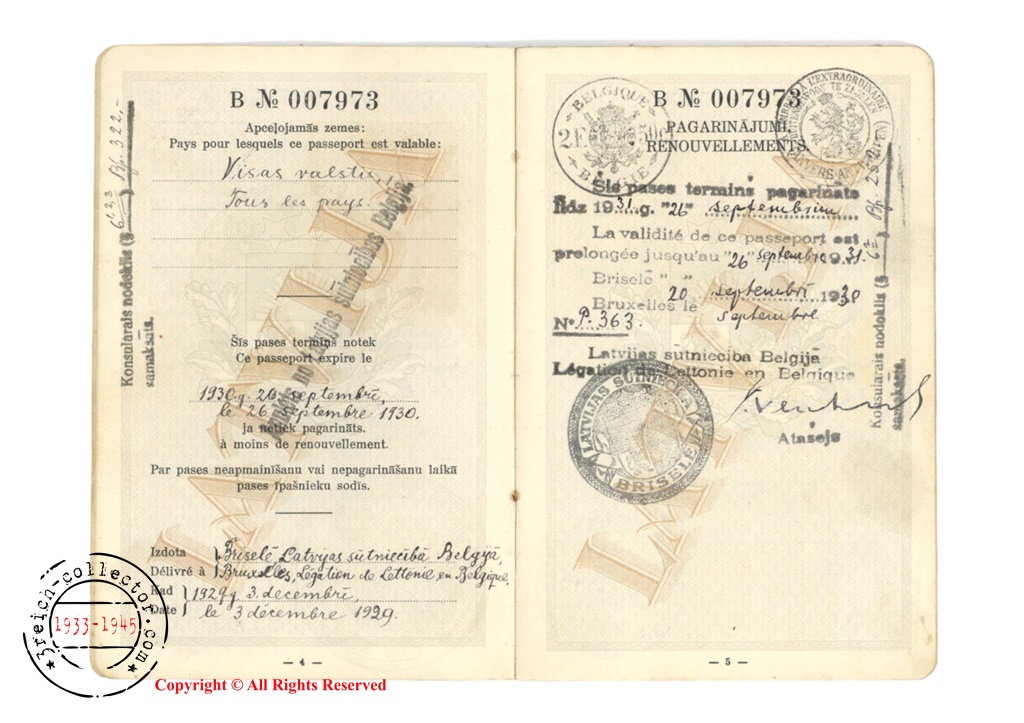 B № 007973
Apceļojamās zemes:
Pays pour lesquels ce passeport est valable:
Visas valstis,
Tous les pays.
Šīs pases termiņš notek
Ce passeport expire le
1930 g. 26 septembrī,
le 26 septembre 1930.
ja netiek pagarināts.
à moins de renouvellement.
Par pases neapmainīšanu vai nepagarināšanu laikā
pases īpašnieku sodīs.
Izdota Briselē, Latvijas sūtniecībā Belgijā
Délivré à Bruxelles, Légation de Lettonie en Belgique,
Kad 1929 g. 3. decembrī,
Date le 3 décembre 1929.
— 4 —
Konsularais nodoklis (§
samaksāts.
Latvijas sūtniecības Belgijā
B № 007973
PAGARINĀJUMI.
RENOUVELLEMENTS.
BELGIQUE
2F 50c
BELGIE
Šis pases termiņš pagarināts
līdz 1931. g. "26" septembrim
La validité de ce passeport est
prolongée jusqu'au "26" septembre 1931.
Briselē " "
20 septembrī 1930
Bruxelles le septembre
N° P. 363.
Latvijas sūtniecība Belgijā
Légation de Lettonie en Belgique
LATVIJAS SŪTNIECĪBA
BRISELĒ
Atašejs
Konsularais nodoklis (§
samaksāts.
— 5 —
3reich-collector.com
1933-1945
Copyright © All Rights Reserved